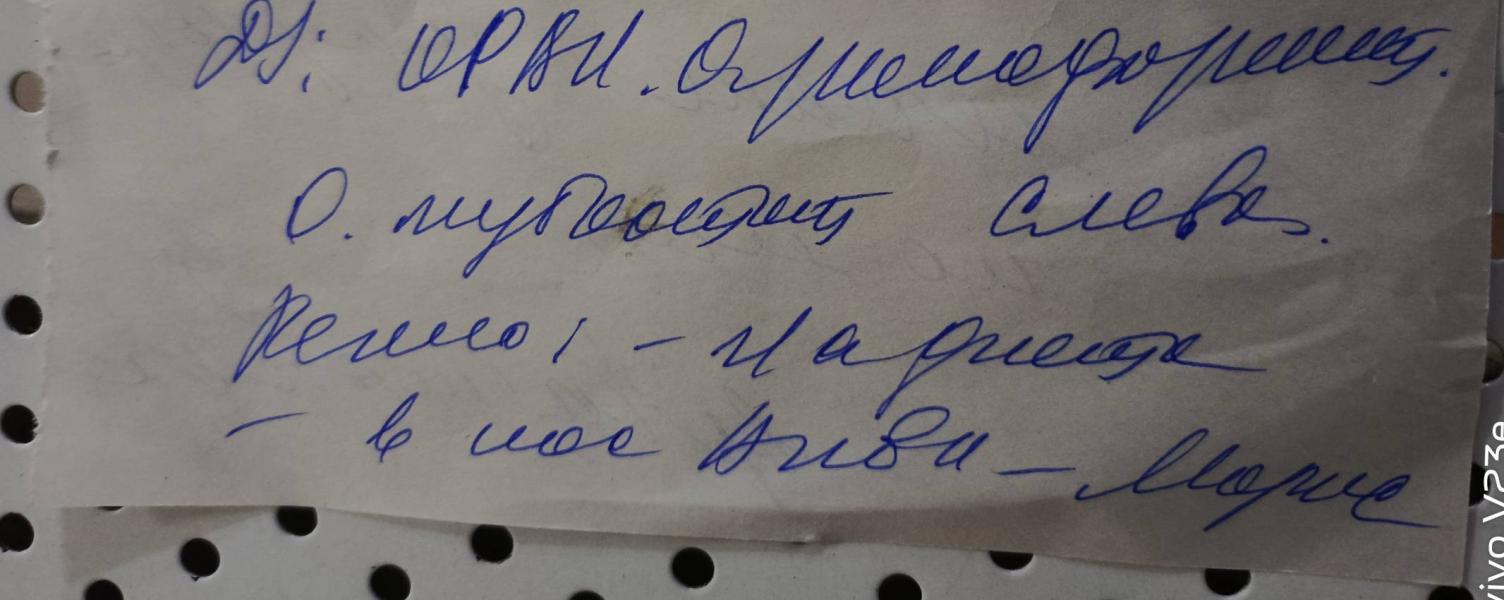 DS: ОРВИ. О. ринофарингит.
О. тубоотит слева.
Рекоменд: -
- в нос Аква - Марис
vivo V23e